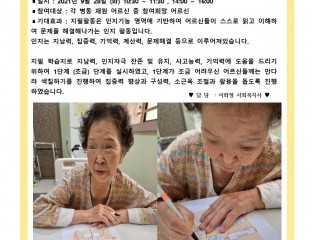 ■ 일시 : 2021년 9월 28일 (화) 10:30 ~ 11:30 , 14:00 ~ 16:00
■ 참여대상 : 각 병동 재원 어르신 중 참여희망 어르신
■ 기대효과 : 지필활동은 인지기능 영역에 기반하여 어르신들이 스스로 읽고 이해하
여 문제를 해결해나가는 인지 활동입니다.
인지는 지남력, 집중력, 기억력, 계산력, 문제해결 등으로 이루어져있습니다.
지필 학습지로 지남력, 인지자극 잔존 및 유지, 사고능력, 기억력에 도움을 드리기
위하여 1단계 (초급) 단계를 실시하였고, 1단계가 조금 어려우신 어르신들께는 만다
라 색칠하기를 진행하여 집중력 향상과 구성력, 소근육 조절과 활용을 돕도록 진행
하였습니다.
♥ 담 당 : 이화정 사회복지사 ♥